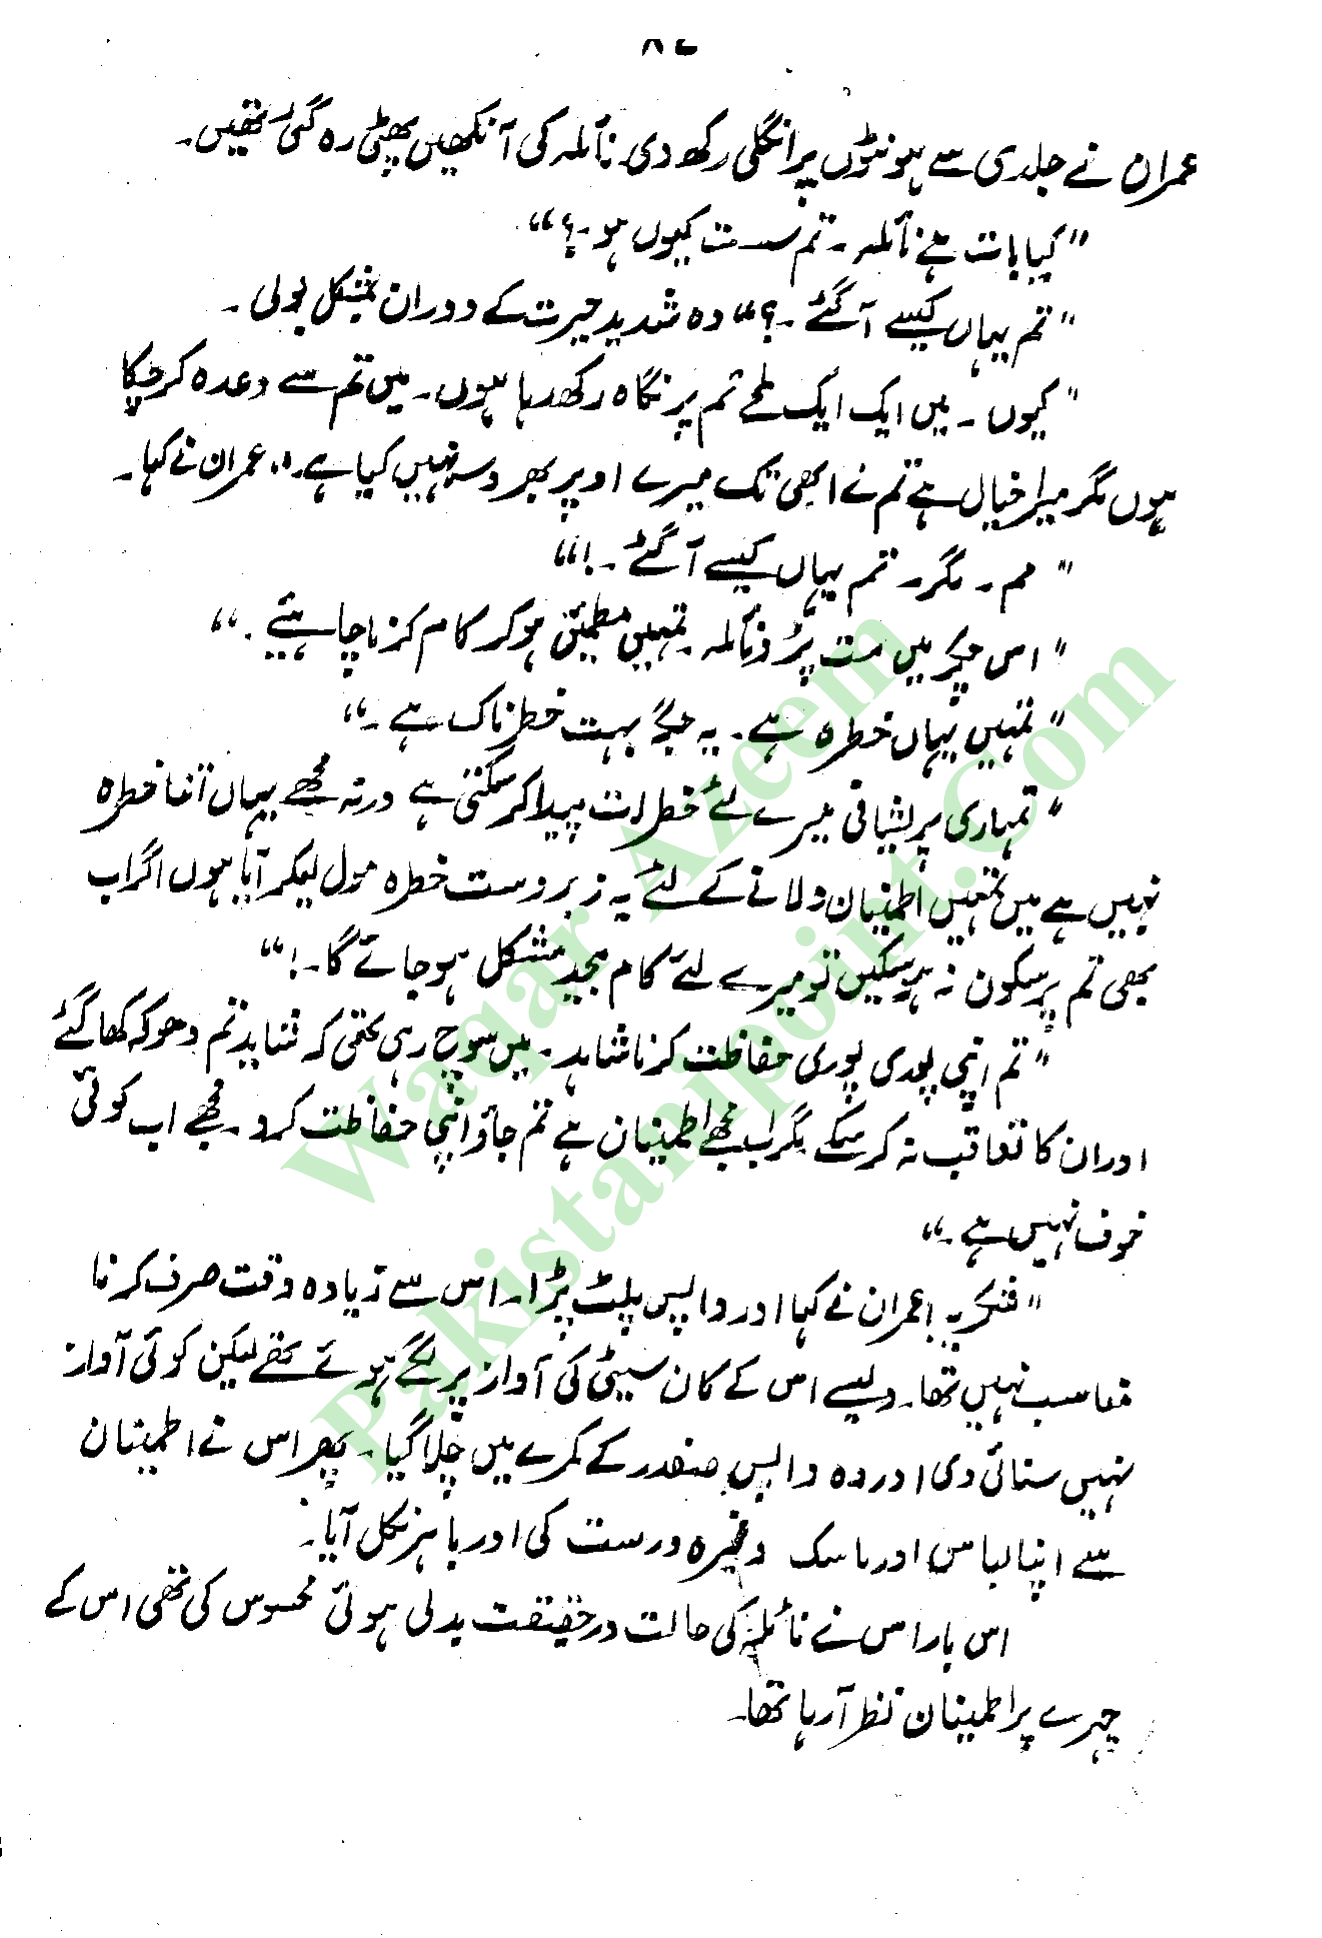 عمران نے جلدی سے ہونٹوں پر انگلی رکھ دی نائلہ کی آنکھیں پھٹی رہ گئی تھیں۔
"کیا بات ہے نائلہ۔ تم سست کیوں ہو۔؟"
"تم یہاں کیسے آ گئے۔؟" وہ شدید حیرت کے دوران بمشکل بولی۔
"کیوں۔ میں ایک ایک لمحے تم پر نگاہ رکھ رہا ہوں۔ میں تم سے وعدہ کر چکا
ہوں مگر میرا خیال ہے تم نے ابھی تک میرے اوپر بھروسہ نہیں کیا ہے۔" عمران نے کہا۔
"مم۔ مگر۔ تم یہاں کیسے آ گئے۔!"
"اس چکر میں مت پڑو نائلہ۔ تمہیں مطمئن ہو کر کام کرنا چاہیئے۔"
"تمہیں یہاں خطرہ ہے۔ یہ جگہ بہت خطرناک ہے۔"
"تمہاری پریشانی میرے لئے خطرات پیدا کر سکتی ہے ورنہ مجھے یہاں اتنا خطرہ
نہیں ہے میں تمہیں اطمینان دلانے کے لئے یہ زبردست خطرہ مول لیکر آیا ہوں اگر اب
بھی تم پرسکون نہ ہو سکیں تو میرے لئے کام بیحد مشکل ہو جائے گا۔!"
"تم اپنی پوری پوری حفاظت کرنا شاہد۔ میں سوچ رہی تھی کہ شاید تم دھوکہ کھا گئے
اور ان کا تعاقب نہ کر سکے مگر اب مجھے اطمینان ہے تم جاؤ اپنی حفاظت کرو۔ مجھے اب کوئی
خوف نہیں ہے۔"
"شکریہ! عمران نے کہا اور واپس پلٹ پڑا۔ اس سے زیادہ وقت صرف کرنا
مناسب نہیں تھا۔ ویسے اس کے کان سیٹی کی آواز پر لگے ہوئے تھے لیکن کوئی آواز
نہیں سنائی دی اور وہ واپس صفدر کے کمرے میں چلا گیا۔ پھر اس نے اطمینان
سے اپنا لباس اور ماسک وغیرہ درست کی اور باہر نکل آیا۔
اس بار اس نے نائلہ کی حالت درحقیقت بدلی ہوئی محسوس کی تھی اس کے
چہرے پر اطمینان نظر آ رہا تھا۔
Waqar Azeem
Pakistanipoint.Com